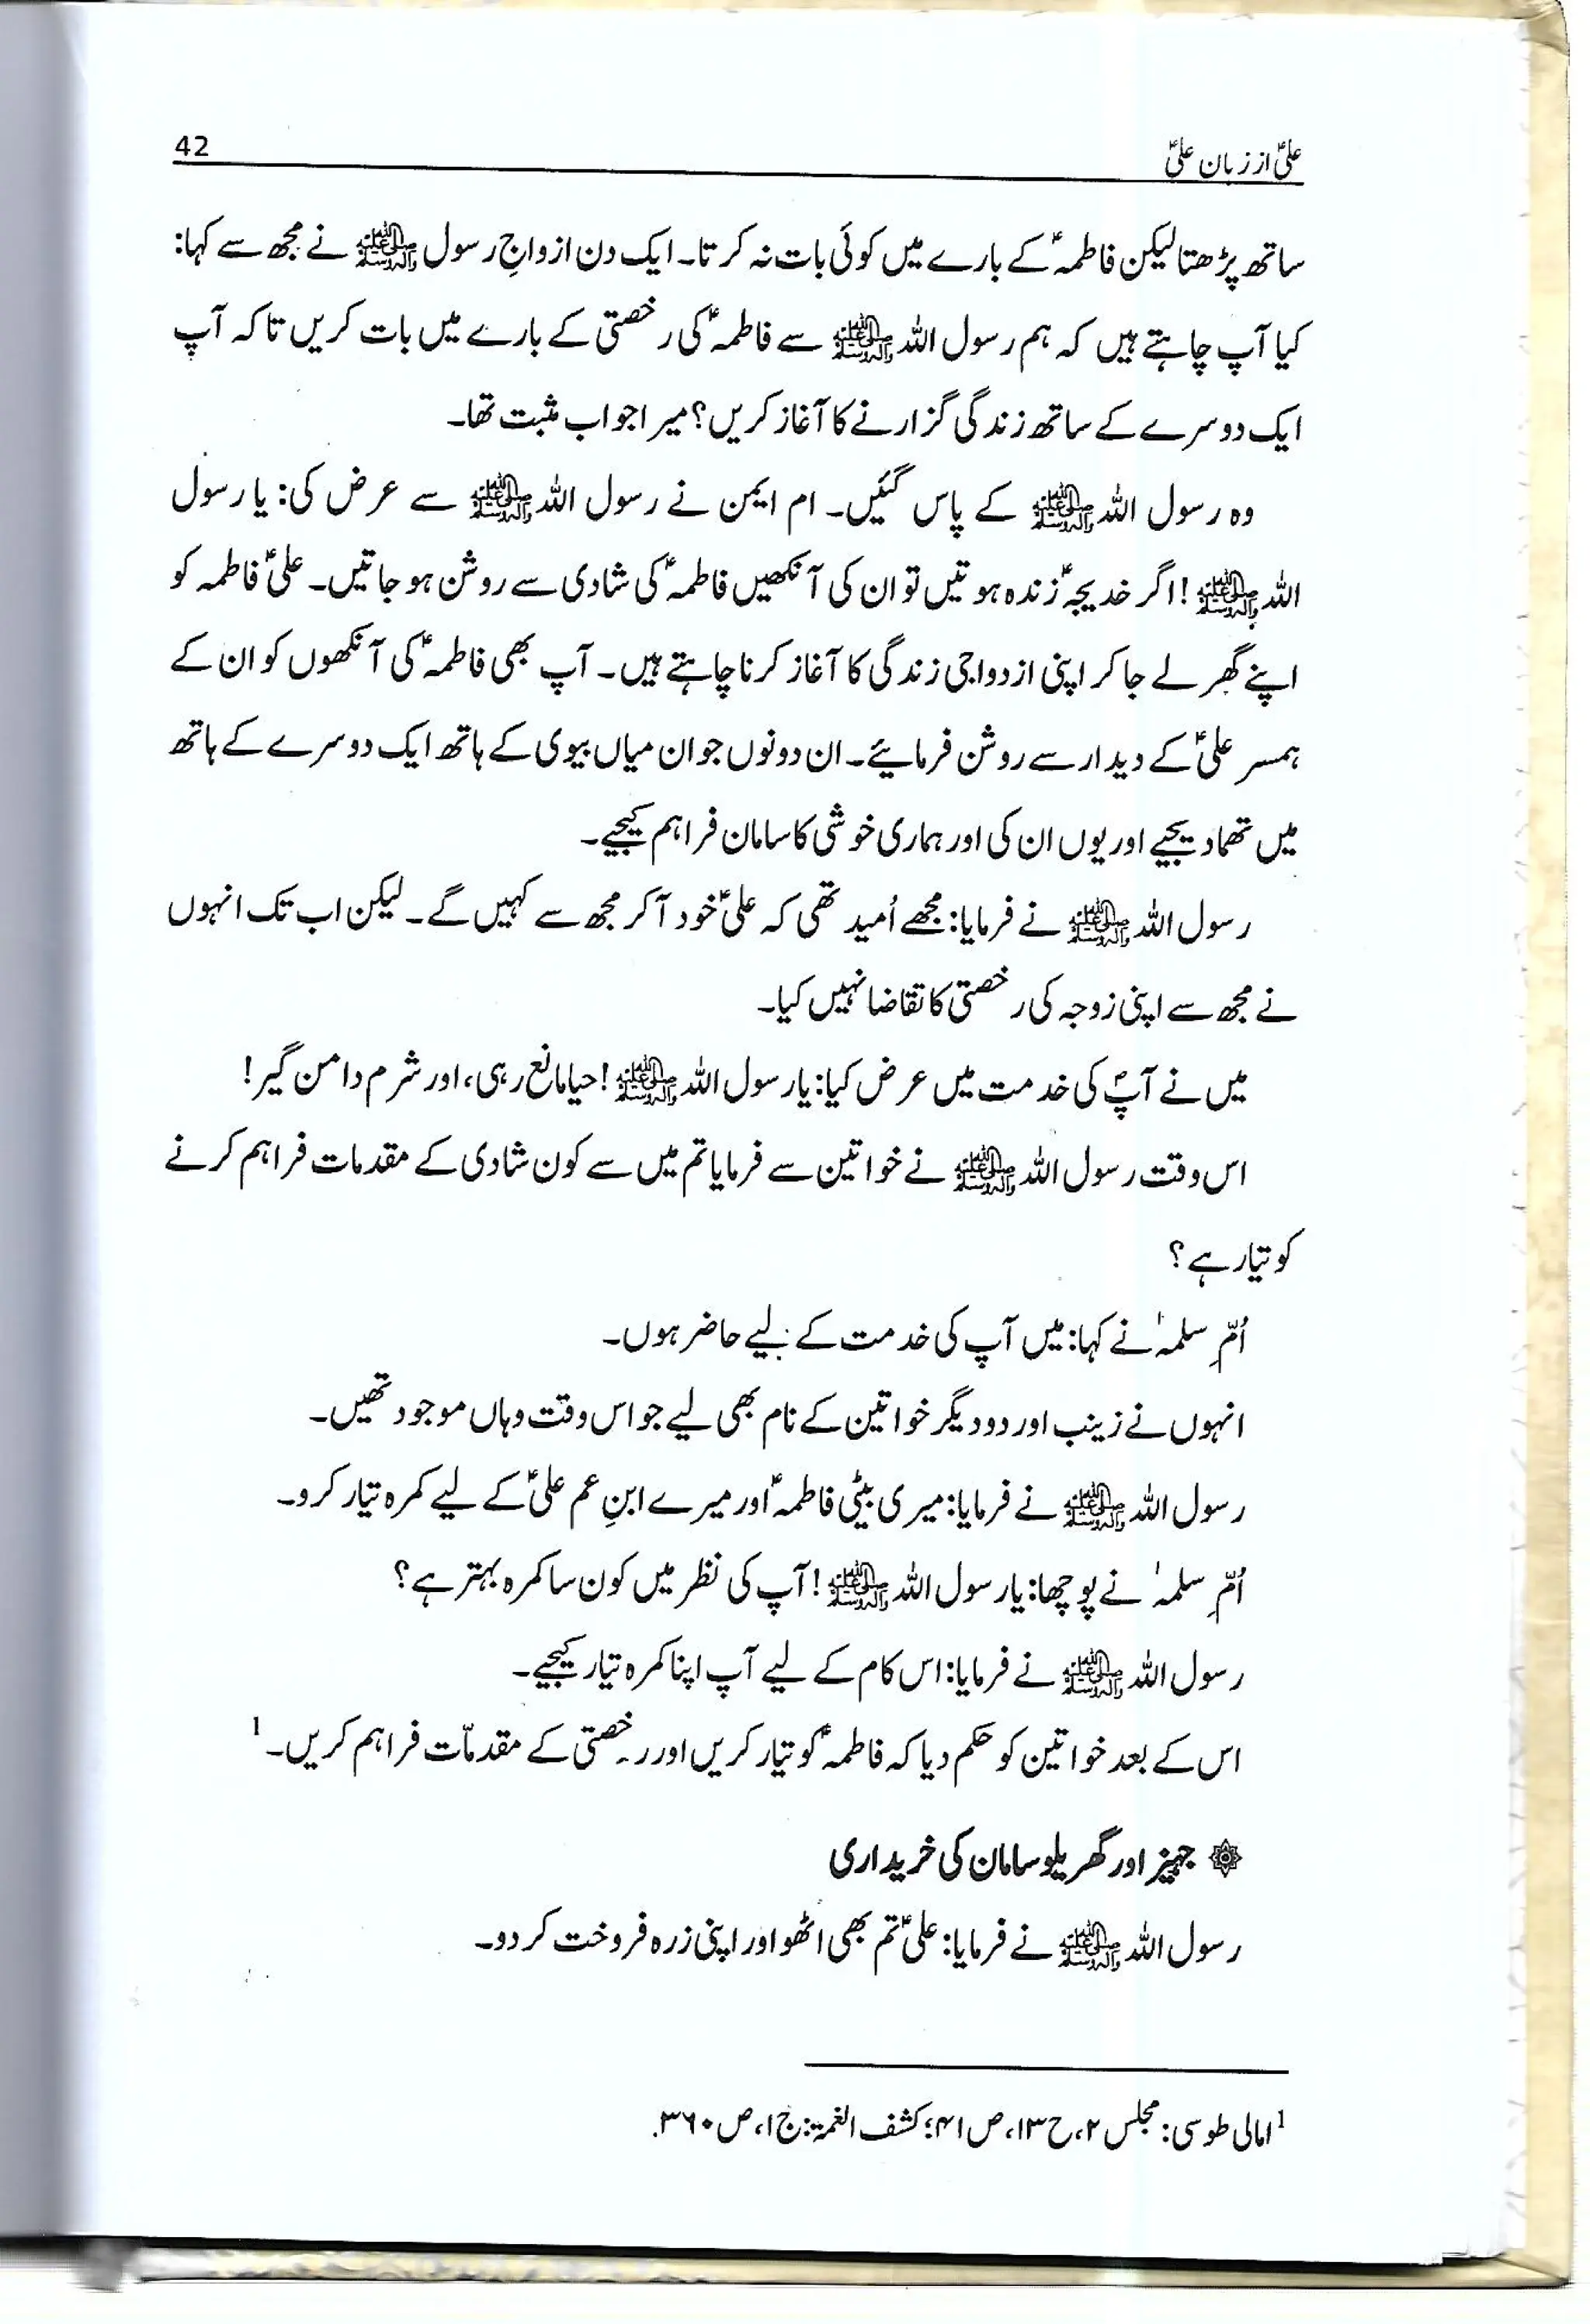 علیؑ از زبان علیؑ 42
ساتھ پڑھتا لیکن فاطمہؑ کے بارے میں کوئی بات نہ کرتا۔ ایک دن ازواجِ رسول ﷺ نے مجھ سے کہا:
کیا آپ چاہتے ہیں کہ ہم رسول اللہ ﷺ سے فاطمہؑ کی رخصتی کے بارے میں بات کریں تاکہ آپ
ایک دوسرے کے ساتھ زندگی گزارنے کا آغاز کریں؟ میرا جواب مثبت تھا۔
وہ رسول اللہ ﷺ کے پاس گئیں۔ ام ایمن نے رسول اللہ ﷺ سے عرض کی: یا رسول
اللہ ﷺ! اگر خدیجہؑ زندہ ہوتیں تو ان کی آنکھیں فاطمہؑ کی شادی سے روشن ہو جاتیں۔ علیؑ فاطمہ کو
اپنے گھر لے جا کر اپنی ازدواجی زندگی کا آغاز کرنا چاہتے ہیں۔ آپ بھی فاطمہؑ کی آنکھوں کو ان کے
ہمسر علیؑ کے دیدار سے روشن فرمائیے۔ ان دونوں جوان میاں بیوی کے ہاتھ ایک دوسرے کے ہاتھ
میں تھما دیجیے اور یوں ان کی اور ہماری خوشی کا سامان فراہم کیجیے۔
رسول اللہ ﷺ نے فرمایا: مجھے اُمید تھی کہ علیؑ خود آکر مجھ سے کہیں گے۔ لیکن اب تک انہوں
نے مجھ سے اپنی زوجہ کی رخصتی کا تقاضا نہیں کیا۔
میں نے آپؐ کی خدمت میں عرض کیا: یا رسول اللہ ﷺ! حیا مانع رہی، اور شرم دامن گیر!
اس وقت رسول اللہ ﷺ نے خواتین سے فرمایا تم میں سے کون شادی کے مقدمات فراہم کرنے
کو تیار ہے؟
اُمِّ سلمہٰ نے کہا: میں آپ کی خدمت کے لیے حاضر ہوں۔
انہوں نے زینب اور دو دیگر خواتین کے نام بھی لیے جو اس وقت وہاں موجود تھیں۔
رسول اللہ ﷺ نے فرمایا: میری بیٹی فاطمہؑ اور میرے ابنِ عم علیؑ کے لیے کمرہ تیار کرو۔
اُمِّ سلمہٰ نے پوچھا: یا رسول اللہ ﷺ! آپ کی نظر میں کون سا کمرہ بہتر ہے؟
رسول اللہ ﷺ نے فرمایا: اس کام کے لیے آپ اپنا کمرہ تیار کیجیے۔
اس کے بعد خواتین کو حکم دیا کہ فاطمہؑ کو تیار کریں اور رخصتی کے مقدمّات فراہم کریں۔ 1
۞ جہیز اور گھریلو سامان کی خریداری
رسول اللہ ﷺ نے فرمایا: علیؑ تم بھی اٹھو اور اپنی زرہ فروخت کر دو۔
1 امالی طوسی: مجلس ۲، ح ۱۳، ص ۴۱؛ کشف الغمۃ: ج ۱، ص ۳۶۰.